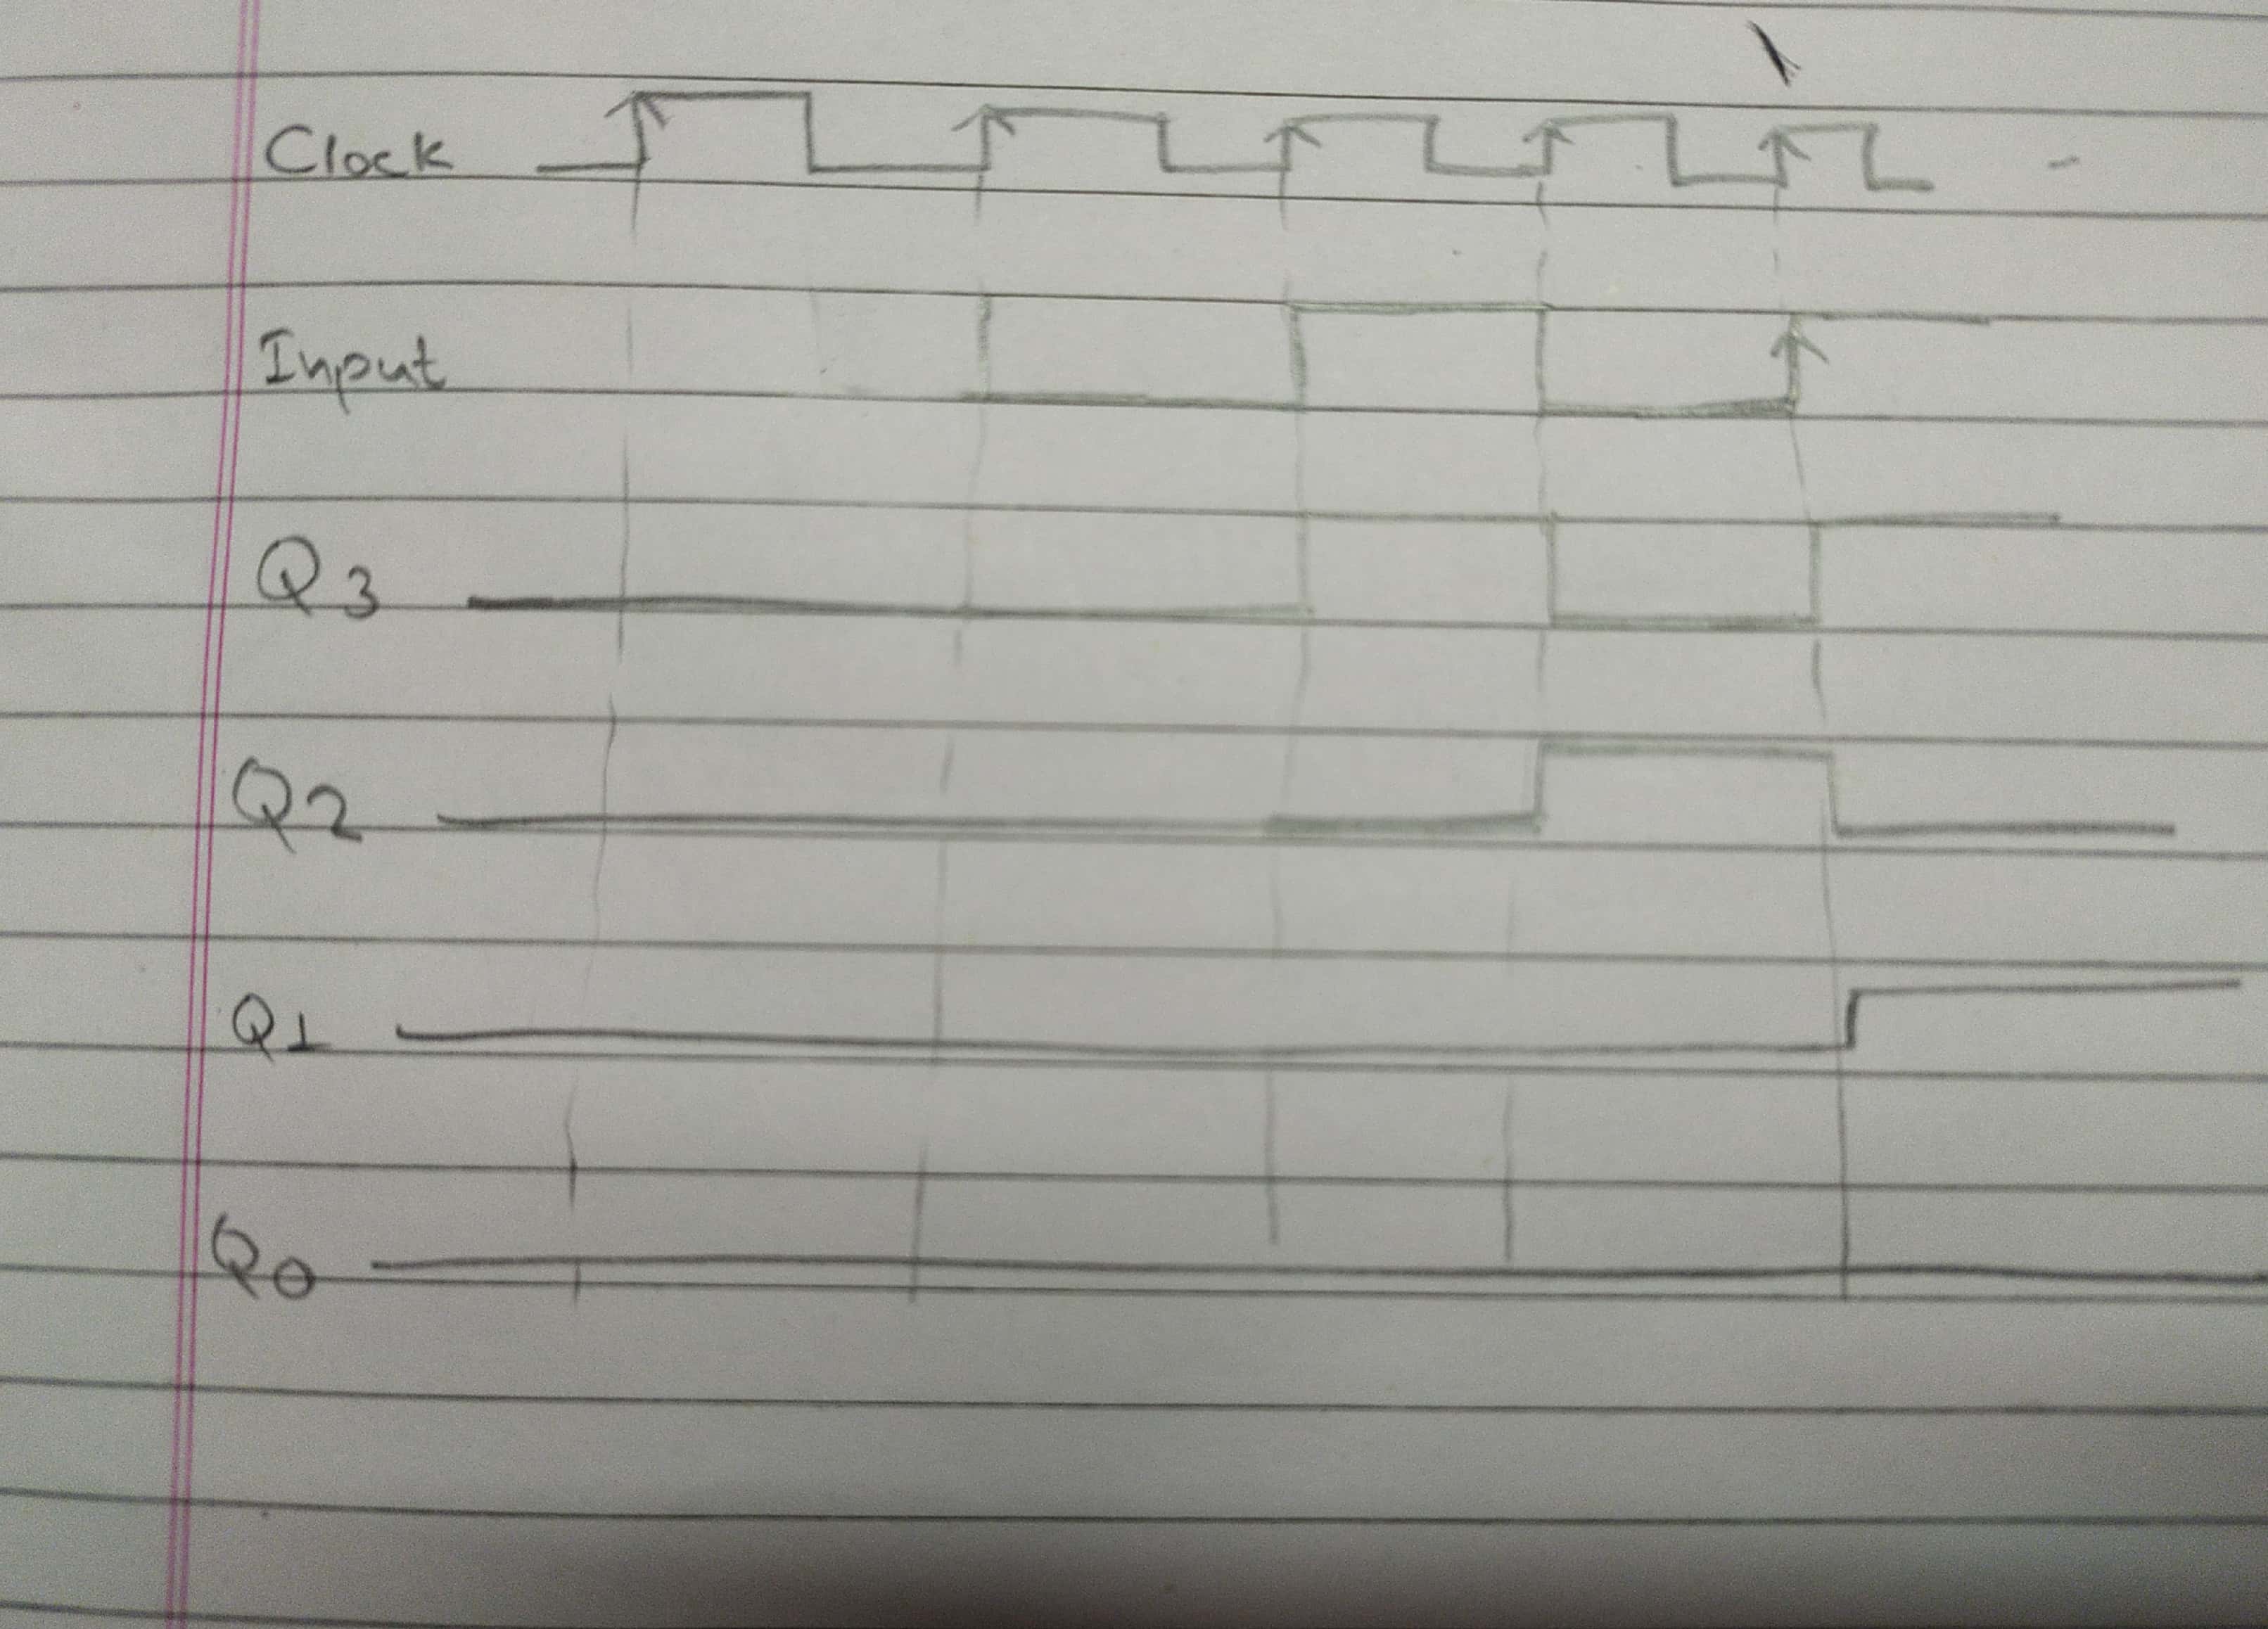 Clock
Input
Q3
Q2
Q1
Q0